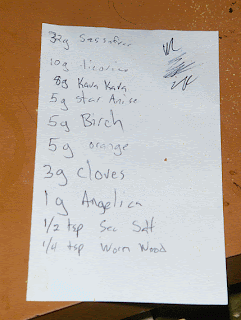 32g Sassafras
10g licorice
8g Kava Kava
5g Star Anise
5g Birch
5g orange
3g Cloves
1g Angelica
1/2 tsp Sea Salt
1/4 tsp Worm Wood